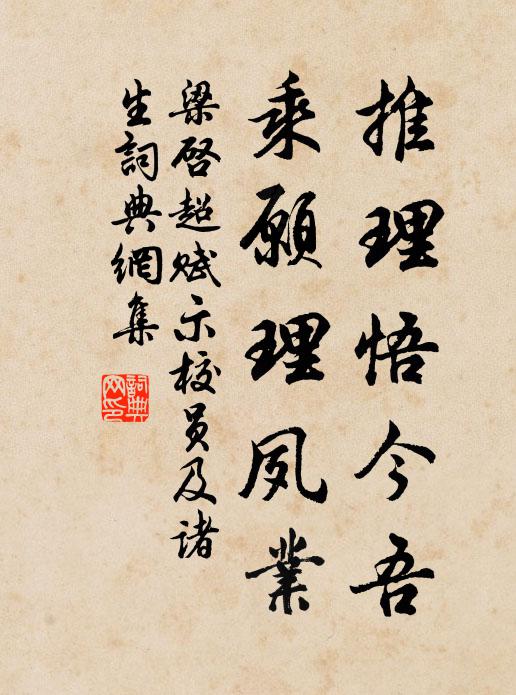 推理悟今吾
乘願理夙業
梁啓超赋示校员及诸
生詞典網集
詞典
网印